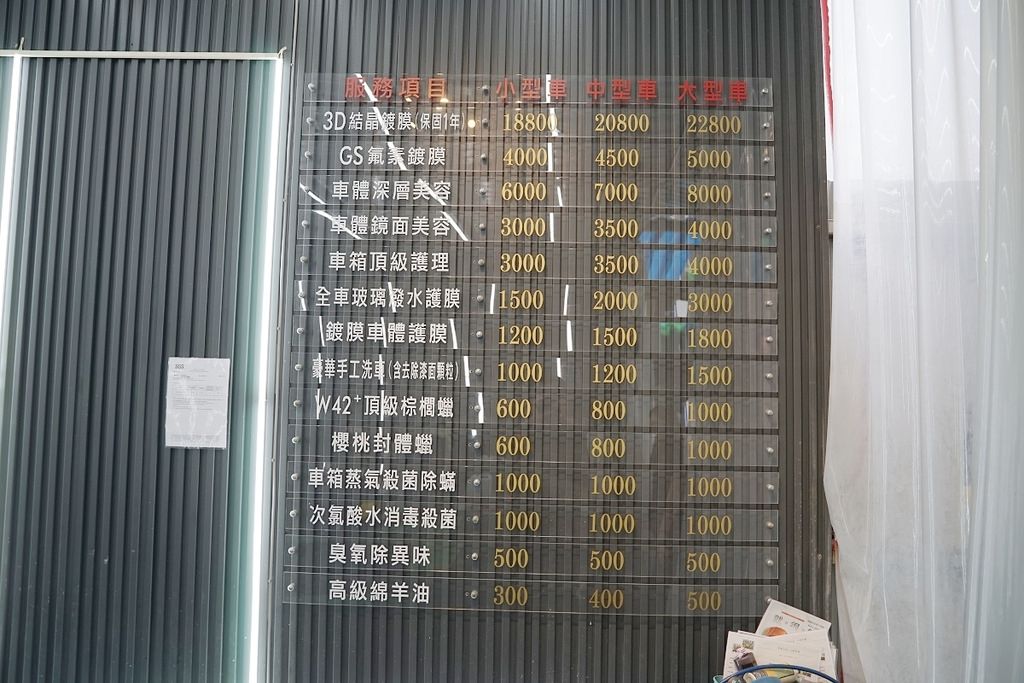 服務項目 小型車 中型車 大型車
3D結晶鍍膜(保固1年) 18800 20800 22800
GS氟素鍍膜 4000 4500 5000
車體深層美容 6000 7000 8000
車體鏡面美容 3000 3500 4000
車箱頂級護理 3000 3500 4000
全車玻璃撥水護膜 1500 2000 3000
鍍膜車體護膜 1200 1500 1800
豪華手工洗車(含去除漆面顆粒) 1000 1200 1500
W42+頂級棕櫚蠟 600 800 1000
櫻桃封體蠟 600 800 1000
車箱蒸氣殺菌除蟎 1000 1000 1000
次氯酸水消毒殺菌 1000 1000 1000
臭氧除異味 500 500 500
高級綿羊油 300 400 500
SGS